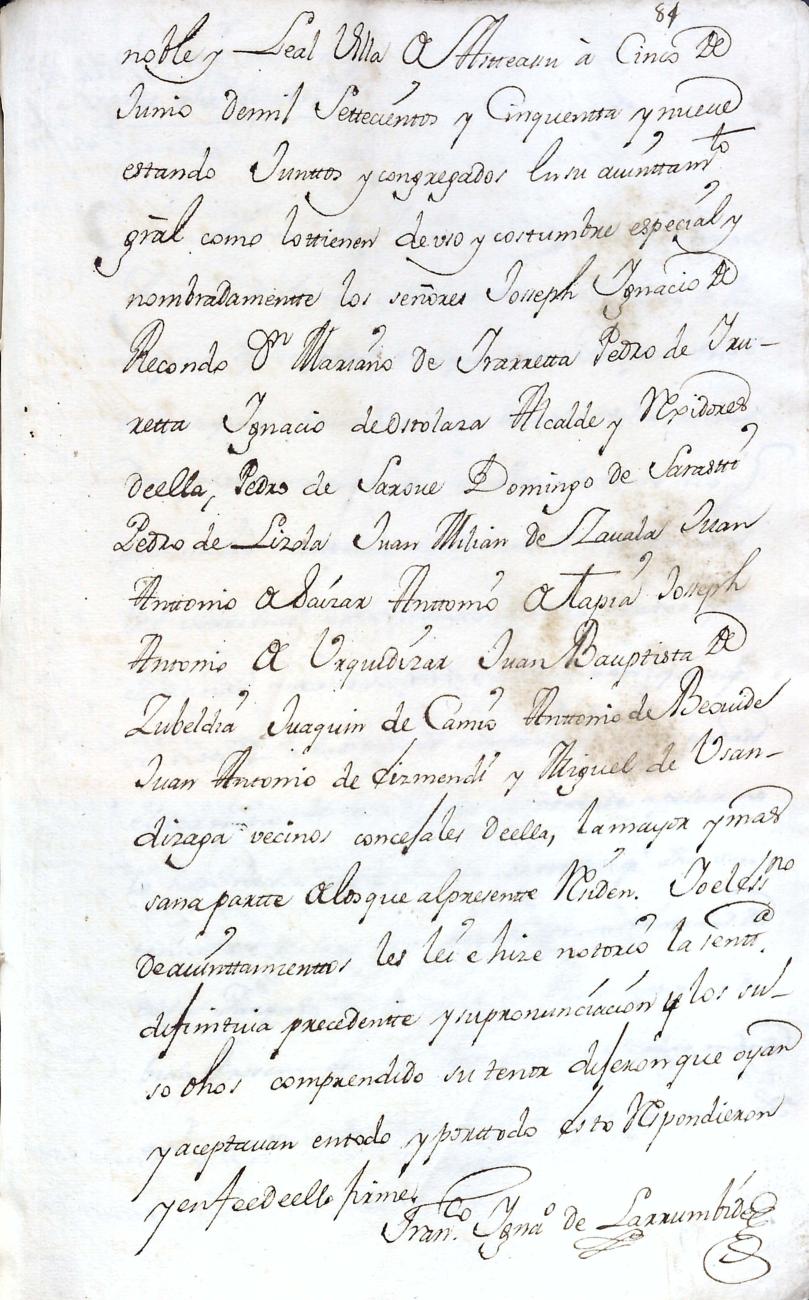 84
noble y Leal Villa de Astteasu à Cinco de
Junio demil Settecientos y Cinquentta y nueve
estando Junttos y congregados en su aiunttamto
gral como lo ttienen de vso y costumbre especial y
nombradamentte los señores Josseph Ygnacio de
Recondo Dn Mariano de Ybarretta Pedro de Yru-
retta Ygnacio de Ostolaza Alcalde y Rexidores
de ella, Pedro de Saroue Domingo de Sarastti
Pedro de Lizola Juan Milian de Zauala Juan
Anttonio de Alcaizar Anttonio de Tapia Josseph
Antonio de Vrquidizar Juan Bauptista de
Zubeldia Juaquin de Camio Anttonio de Beouide
Juan Antonio de Eizmendi y Miguel de Vsan-
dizaga vecinos concejales de ella, la mayor y mas
sana partte de los que al presentte Residen. Yo el essno
de aiunttamienttos les lei e hize notorio la sentta
difinitiua precedentte y su pronunciacion y los su-
so dhos comprendido su tenor dijeron que oyan
y aceptauan en todo y por ttodo esto Respondieron
y en fee de ello firme.
Franco. Ygnao de Larrumbide